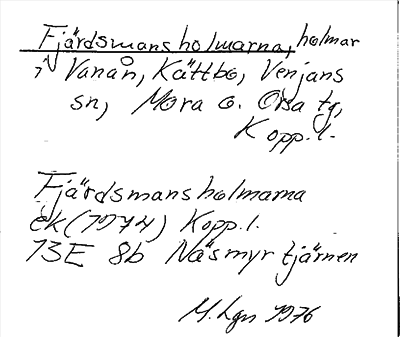 Fjärdsmansholmarna, holmar
i Vanån, Kättbo, Venjans
sn, Mora o. Orsa tg,
Kopp. l.
Fjärdsmansholmarna
ek (1974) Kopp. l.
13E 8b Näsmyrtjärnen
M. Lgn 1976